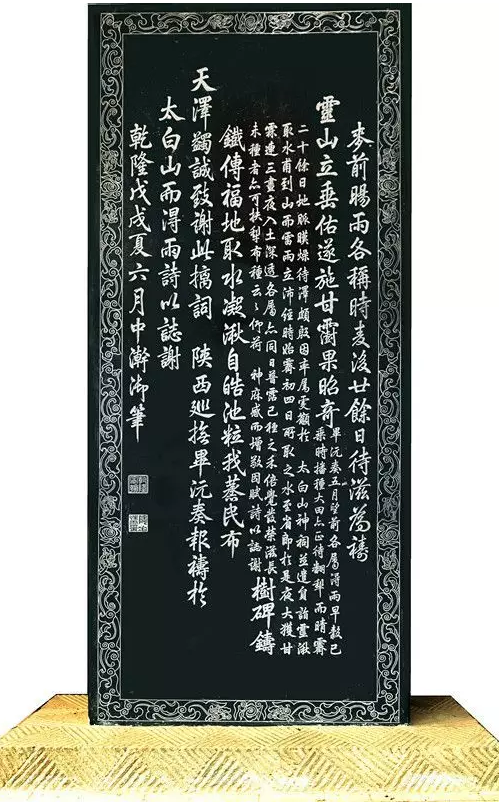 麥前暘雨各稱時麦後廿餘日待滋為禱
靈山立垂佑遂施甘霔果昭奇
畢沅奏五月望前各屬得雨早穀已
乘時播種大田亦正待翻犁而晴霽
二十餘日地脈暵燥待澤頗殷因率屬虔籲於 太白山神祠並遣員詣靈湫
取水甫到山而雷雨立沛經時始霽初四日所取之水至省即於是夜大獲甘
霖連三晝夜入土深透各屬亦同日普霑已種之禾倍覺發榮滋長
未種者亦可扶犁布種云〻仰荷 神庥感而增敬因賦詩以誌謝
樹碑鑄
鐵傳福地取水凝湫自皓池粒我蒸民布
天澤蠲誠致謝此摛詞 陝西巡撫畢沅奏報禱於
太白山而得雨詩以誌謝
乾隆戊戌夏六月中澣御筆